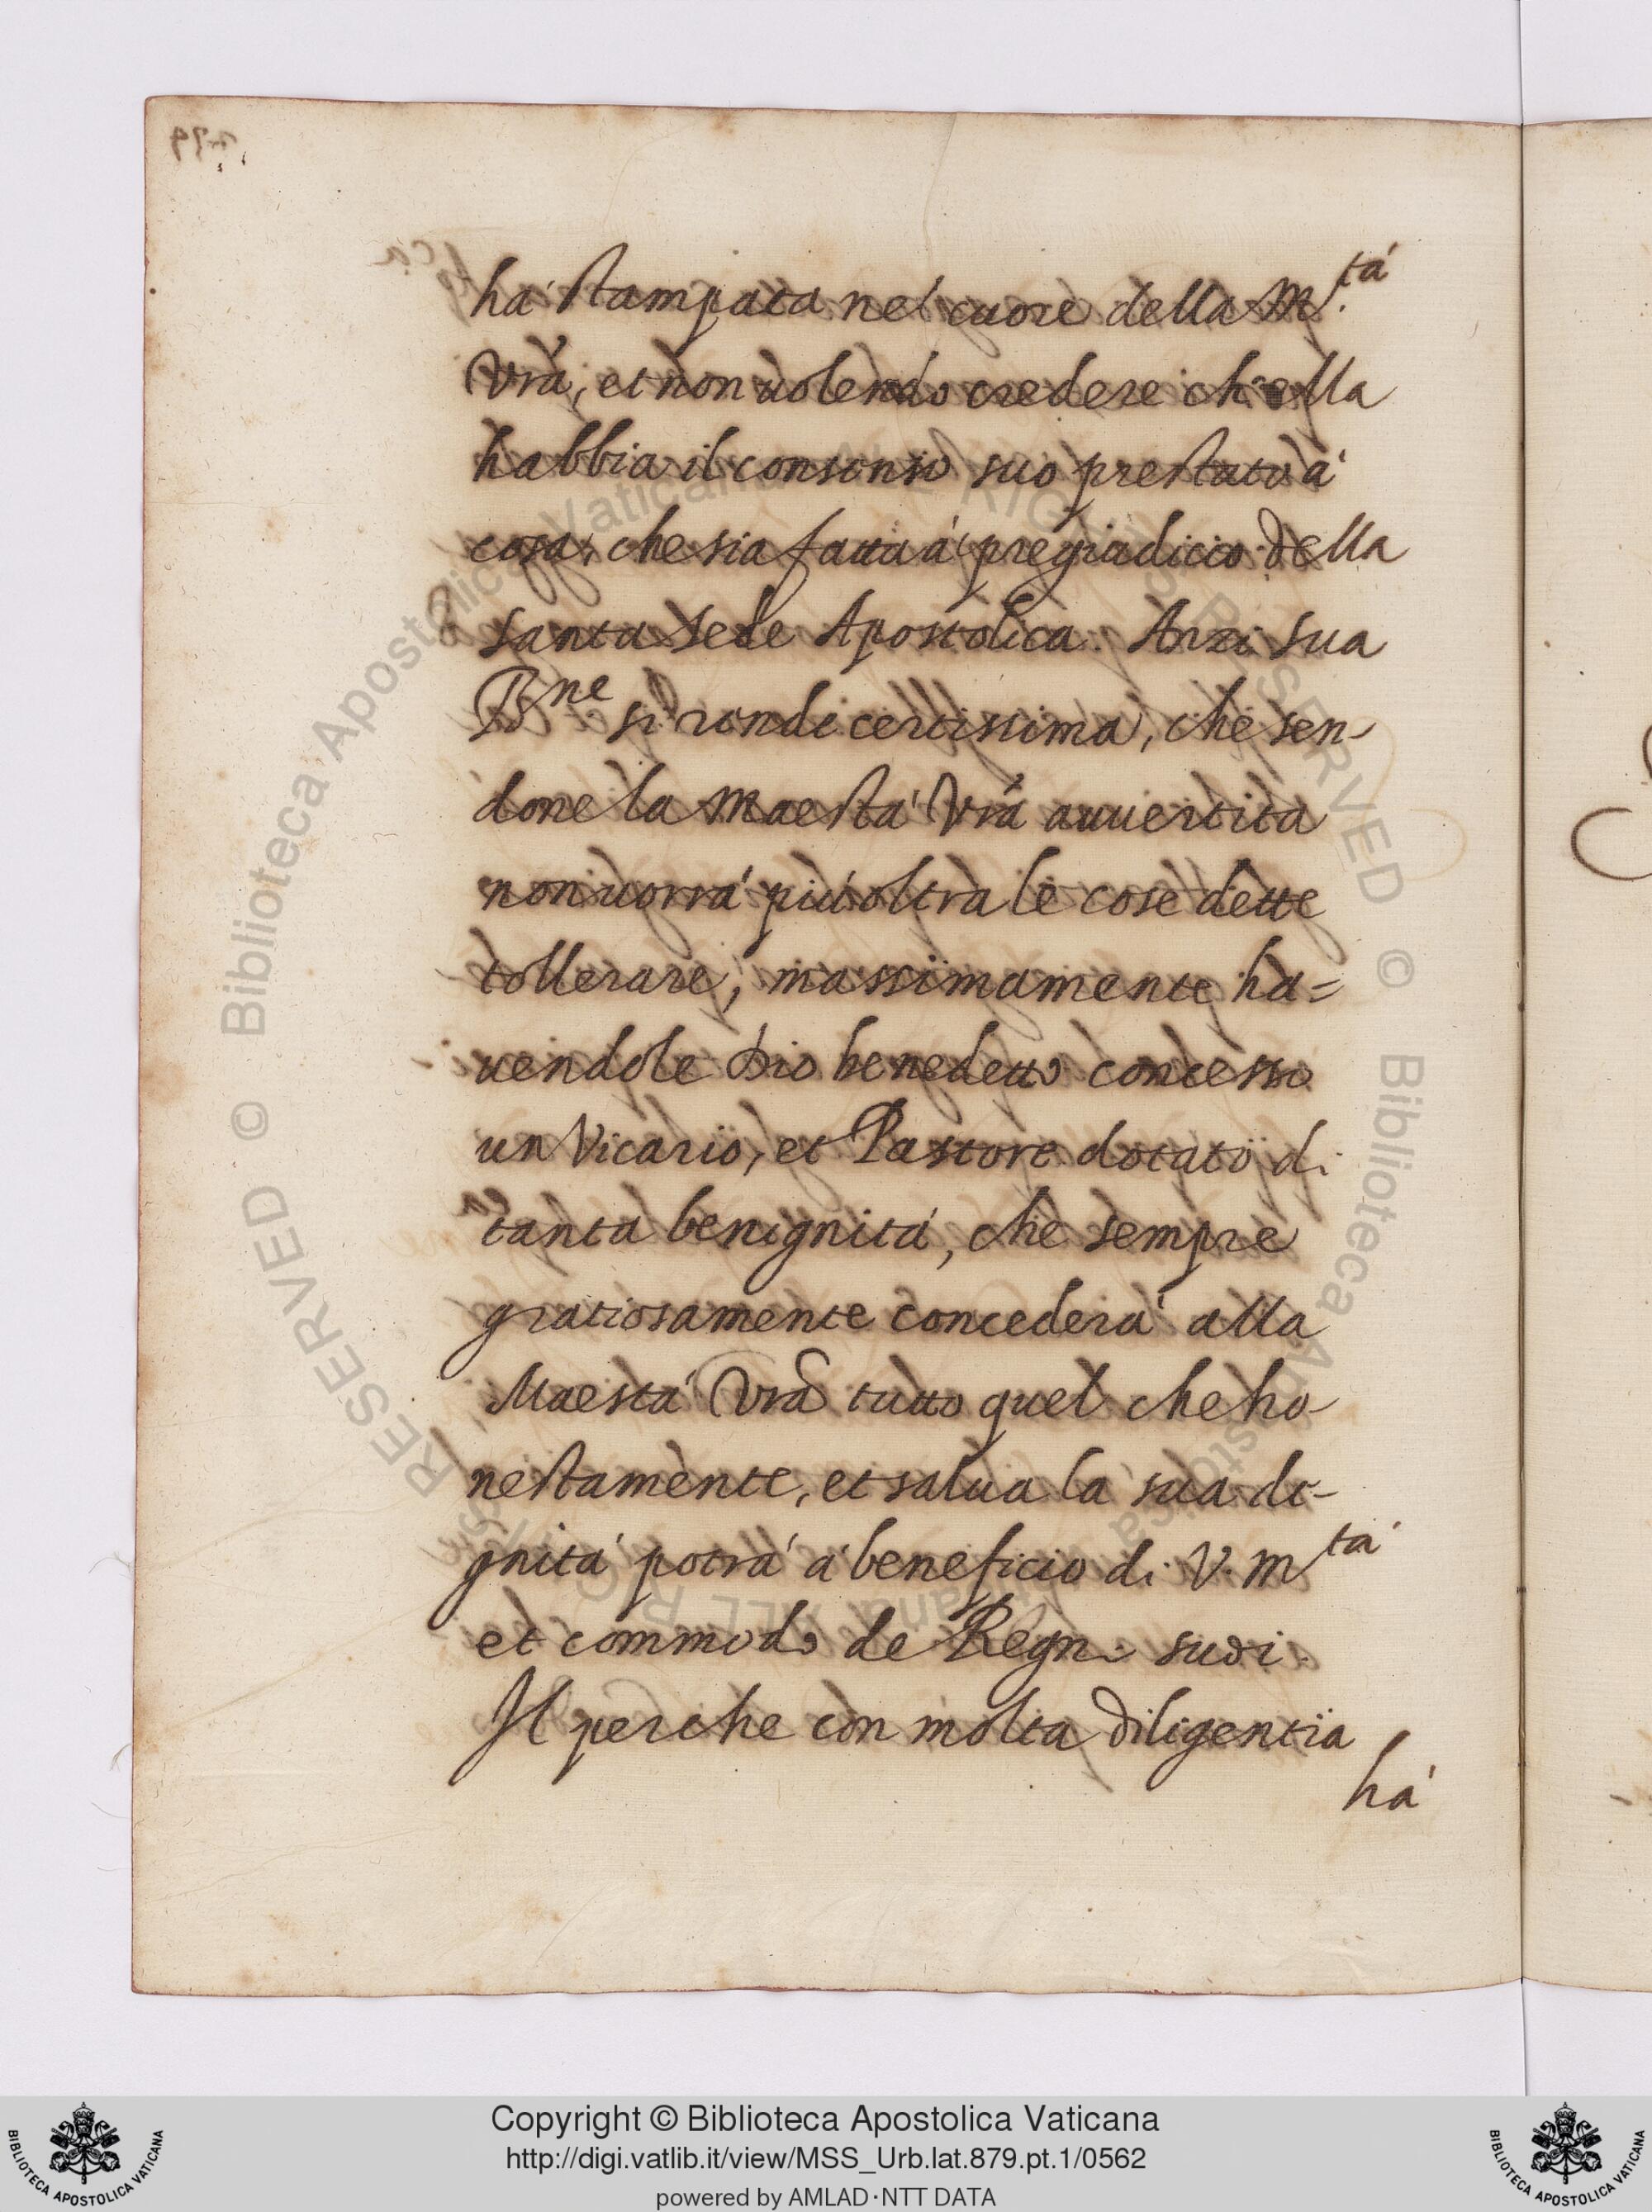 há stampata nel cuore della M.tá
Vrã, et non uolendo credere ch'ella
habbia il consenso suo prestato á
cosa, che sia fatta á pregiudicio della
santa sede Apostolica. Anzi sua
Bne si rende certissima, che sen-
done la Maestá Vrã auuertita
non uorrá piú oltra le cose dette
tollerare, massimamente ha=
uendole Dio benedetto concesso
un Vicario, et Pastore dotato di
tanta benignitá, che sempre
gratiosamente concederá alla
Maestá Vrã tutto quel che ho-
nestamente, et salua la sua di-
gnitá potrá á beneficio di V. Mtá
et commodo de Regni suoi.
Il perche con molta diligentia
há
Copyright © Biblioteca Apostolica Vaticana
http://digi.vatlib.it/view/MSS_Urb.lat.879.pt.1/0562
powered by AMLAD·NTT DATA
BIBLIOTECA APOSTOLICA VATICANA
BIBLIOTECA APOSTOLICA VATICANA